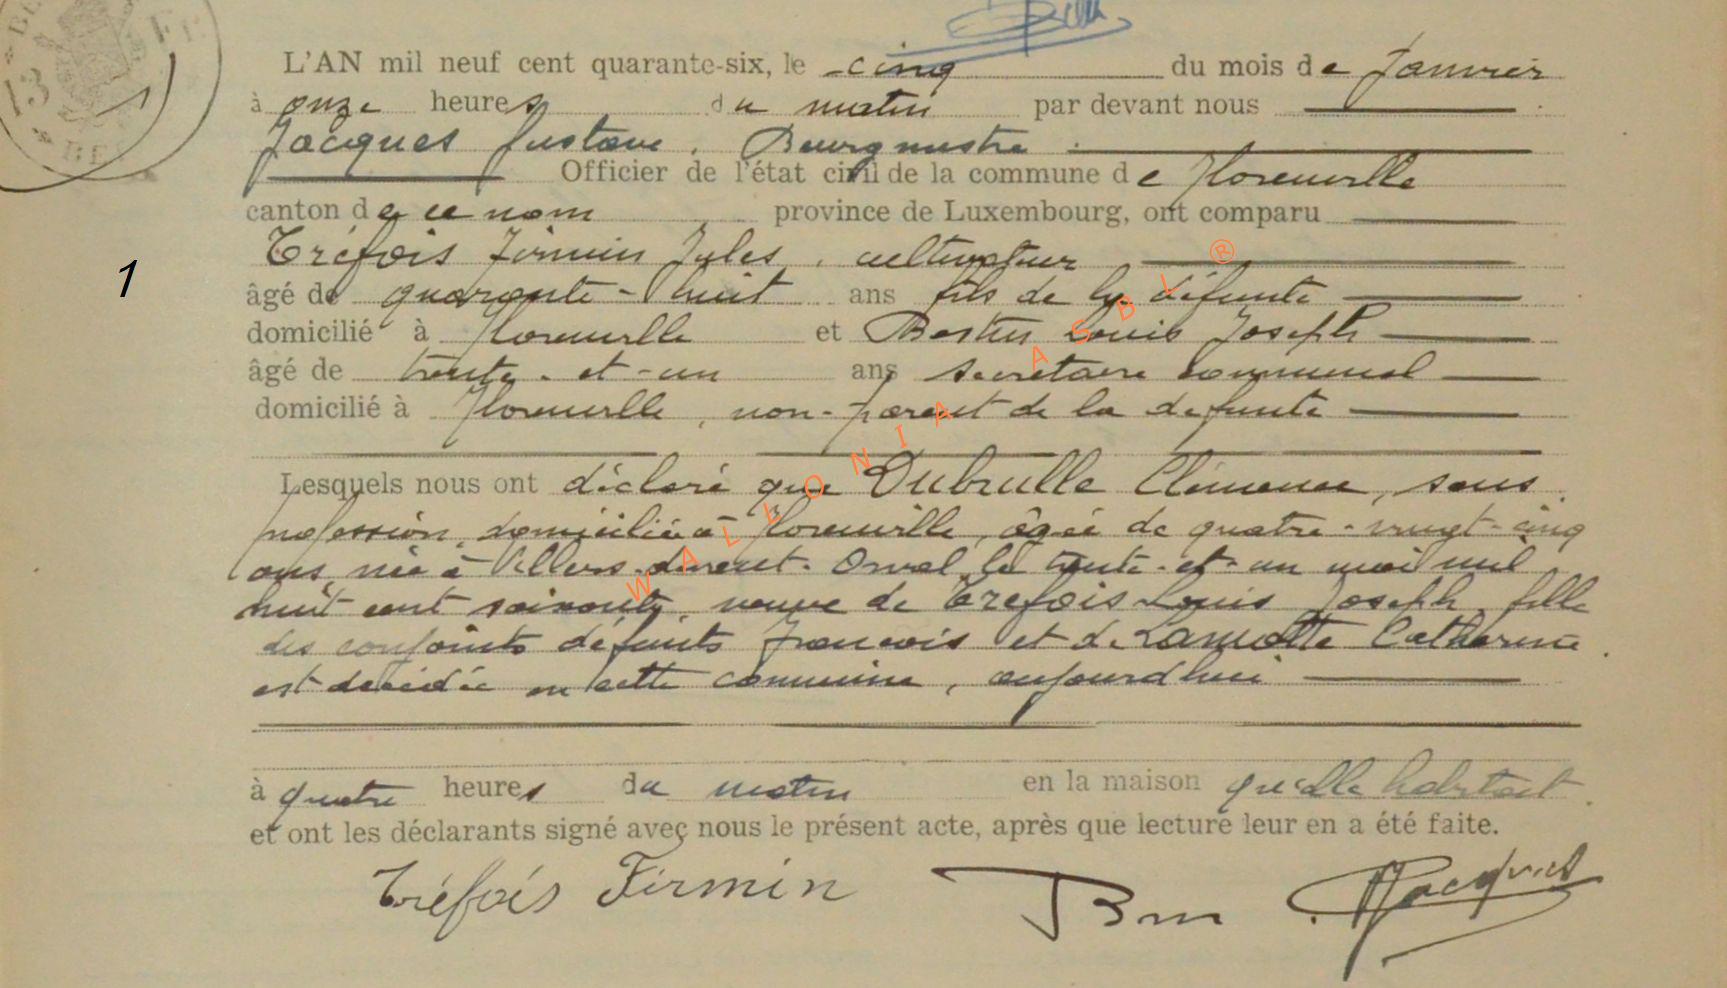 L'AN mil neuf cent quarante-six, le cinq du mois de Janvier
à onze heures du matin par devant nous
Jacques Gustave, Bourgmestre
Officier de l'état civil de la commune de Florenville
canton de ce nom province de Luxembourg, ont comparu
Tréfois Firmin Jules, cultivateur
âgé de quarante-huit ans fils de la défunte
domicilié à Florenville et Louis Joseph
âgé de trente-et-un ans secrétaire communal
domicilié à Florenville, non-parent de la défunte
1
Lesquels nous ont déclaré que Dubrulle Clémence, sans
profession, domiciliée à Florenville, âgée de quatre-vingt-cinq
ans, née à Villers-devant-Orval, le trente-et-un mai mil
huit cent soixante, veuve de Tréfois Louis Joseph, fille
des conjoints défunts François et de Lamotte Catherine
est décédée en cette commune, aujourd'hui
à quatre heures du matin en la maison qu'elle habitait.
et ont les déclarants signé avec nous le présent acte, après que lecture leur en a été faite.
Tréfois Firmin Jacques
WALLONIA ASBL ®